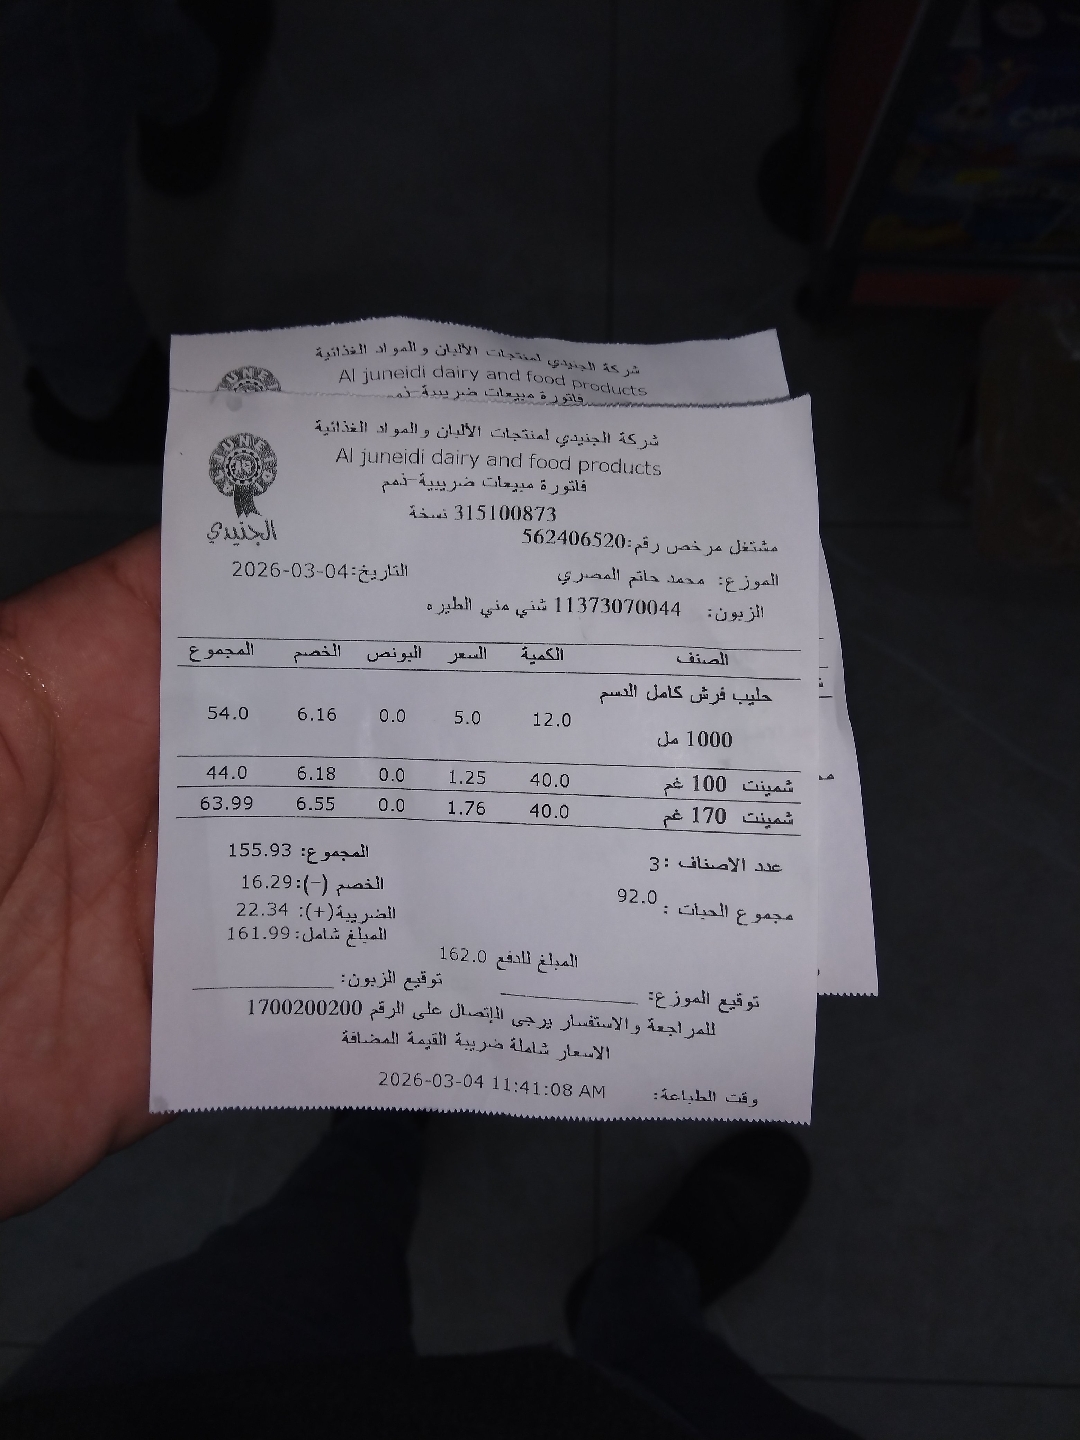 شركة الجنيدي لمنتجات الألبان والمواد الغذائية
Al juneidi dairy and food products
فاتورة مبيعات ضريبية-ذمم
شركة الجنيدي لمنتجات الألبان والمواد الغذائية
Al juneidi dairy and food products
فاتورة مبيعات ضريبية-ذمم
الجنيدي
315100873 نسخة
مشتغل مرخص رقم:562406520
الموزع: محمد حاتم المصري التاريخ:2026-03-04
الزبون: 11373070044 شني مني الطيره
الصنف الكمية السعر البونص الخصم المجموع
حليب فرش كامل الدسم
1000 مل 12.0 5.0 0.0 6.16 54.0
شمينت 100 غم 40.0 1.25 0.0 6.18 44.0
شمينت 170 غم 40.0 1.76 0.0 6.55 63.99
عدد الاصناف :3 المجموع: 155.93
الخصم (-):16.29
مجموع الحبات : 92.0 الضريبة(+): 22.34
المبلغ شامل:161.99
المبلغ للدفع 162.0
توقيع الموزع: توقيع الزبون:
للمراجعة والاستفسار يرجى الإتصال على الرقم 1700200200
الاسعار شاملة ضريبة القيمة المضافة
وقت الطباعة: 2026-03-04 11:41:08 AM